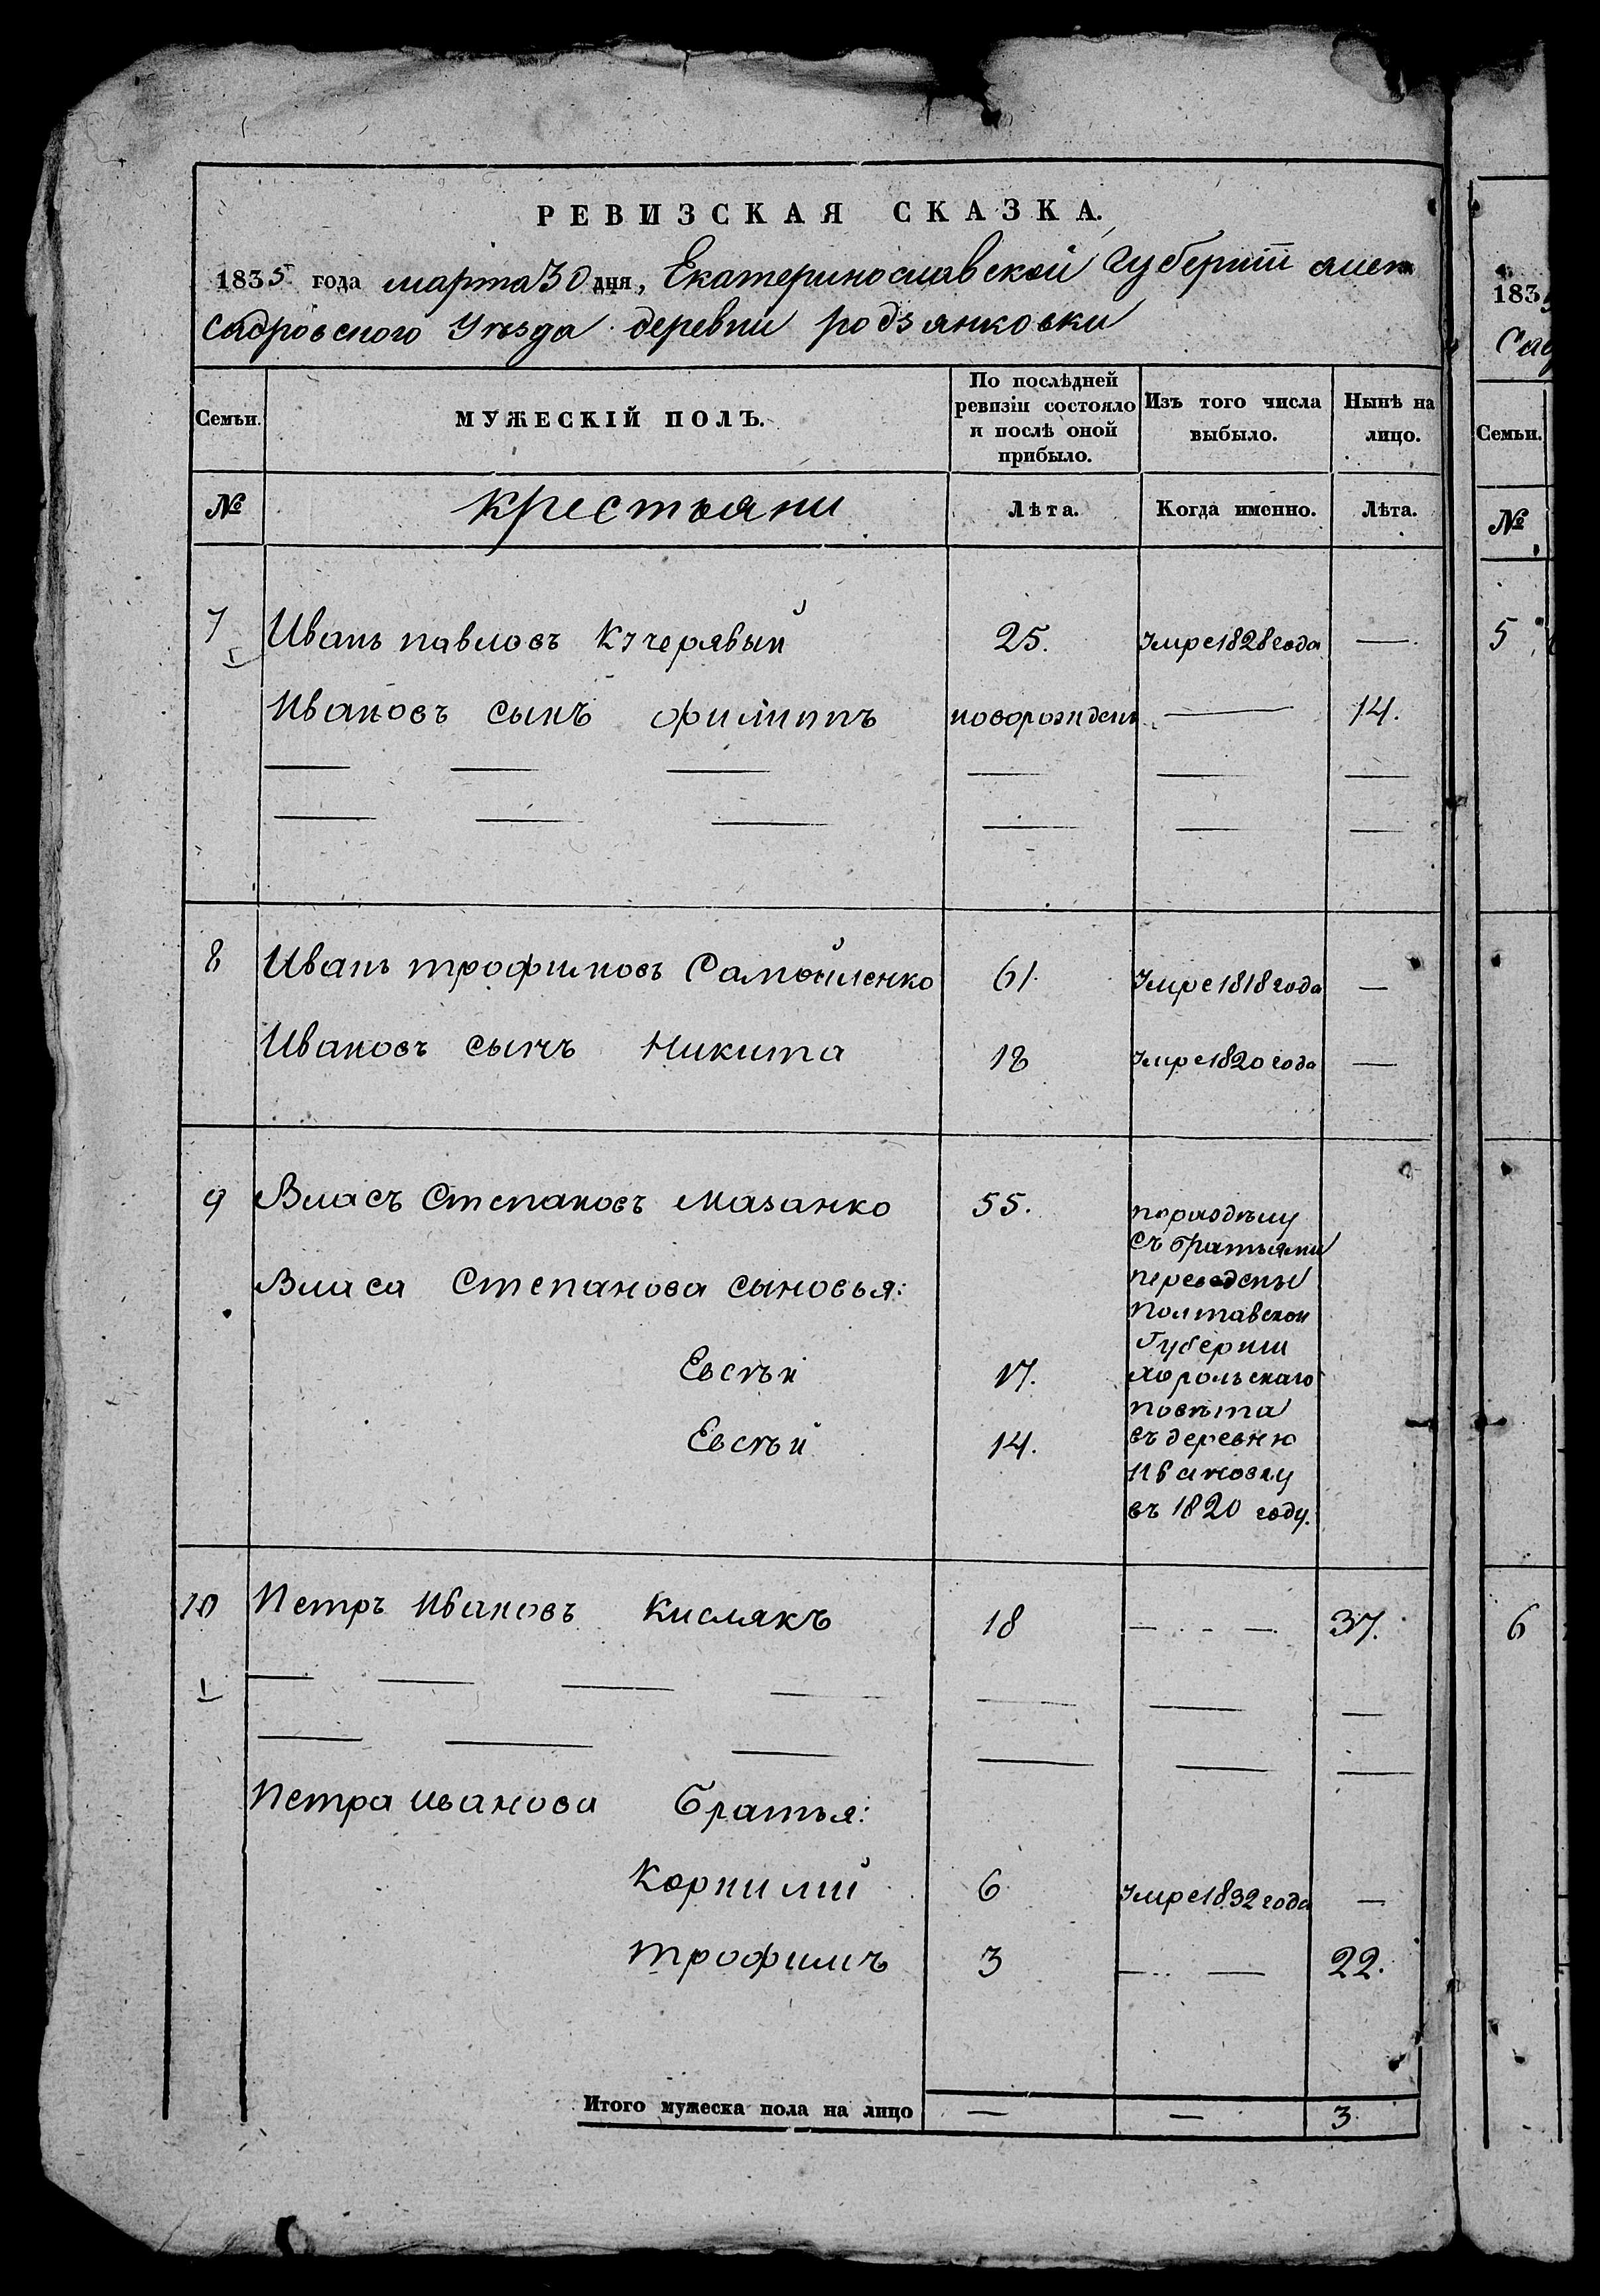 РЕВИЗСКАЯ СКАЗКА.
1835 года марта 30 дня, Екатеринославской Губерніи алек
садровского Уѣзда деревни родзянковки
Семьи.
МУЖЕСКІЙ ПОЛЪ.
По послѣдней ревизіи состояло и послѣ оной прибыло.
Изъ того числа выбыло.
Нынѣ на лицо.
№
крестьяни
Лѣта.
Когда именно.
Лѣта.
7 Иванъ павловъ Кучерявый 25. умре 1828 года —
1
Ивановъ сынъ филиппъ новорожден — 14.
8 Иванъ трофимовъ Самойленко 61. умре 1818 года —
Ивановъ сынъ Никита 18 умре 1820 года —
9 Власъ Степановъ Мазанко 55.
Власа Степанова сыновья:
Евсѣй 17.
Евсѣй 14.
съ братьями
переведены
полтавской
Губерніи
хорольскаго
повѣта
въ деревню
Ивановку
въ 1820 году.
10 Петръ Ивановъ Кислякъ 18 — 37.
1
Петра иванова братья:
Корнилий 6 умре 1832 года —
трофимъ 3 — 22.
Итого мужеска пола на лицо — — 3.
183
Сад
Семьи.
№
5
6